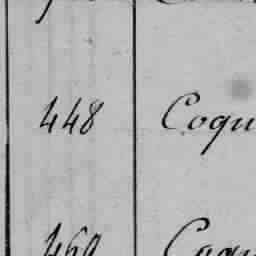 448 Coqu
469 Coqu